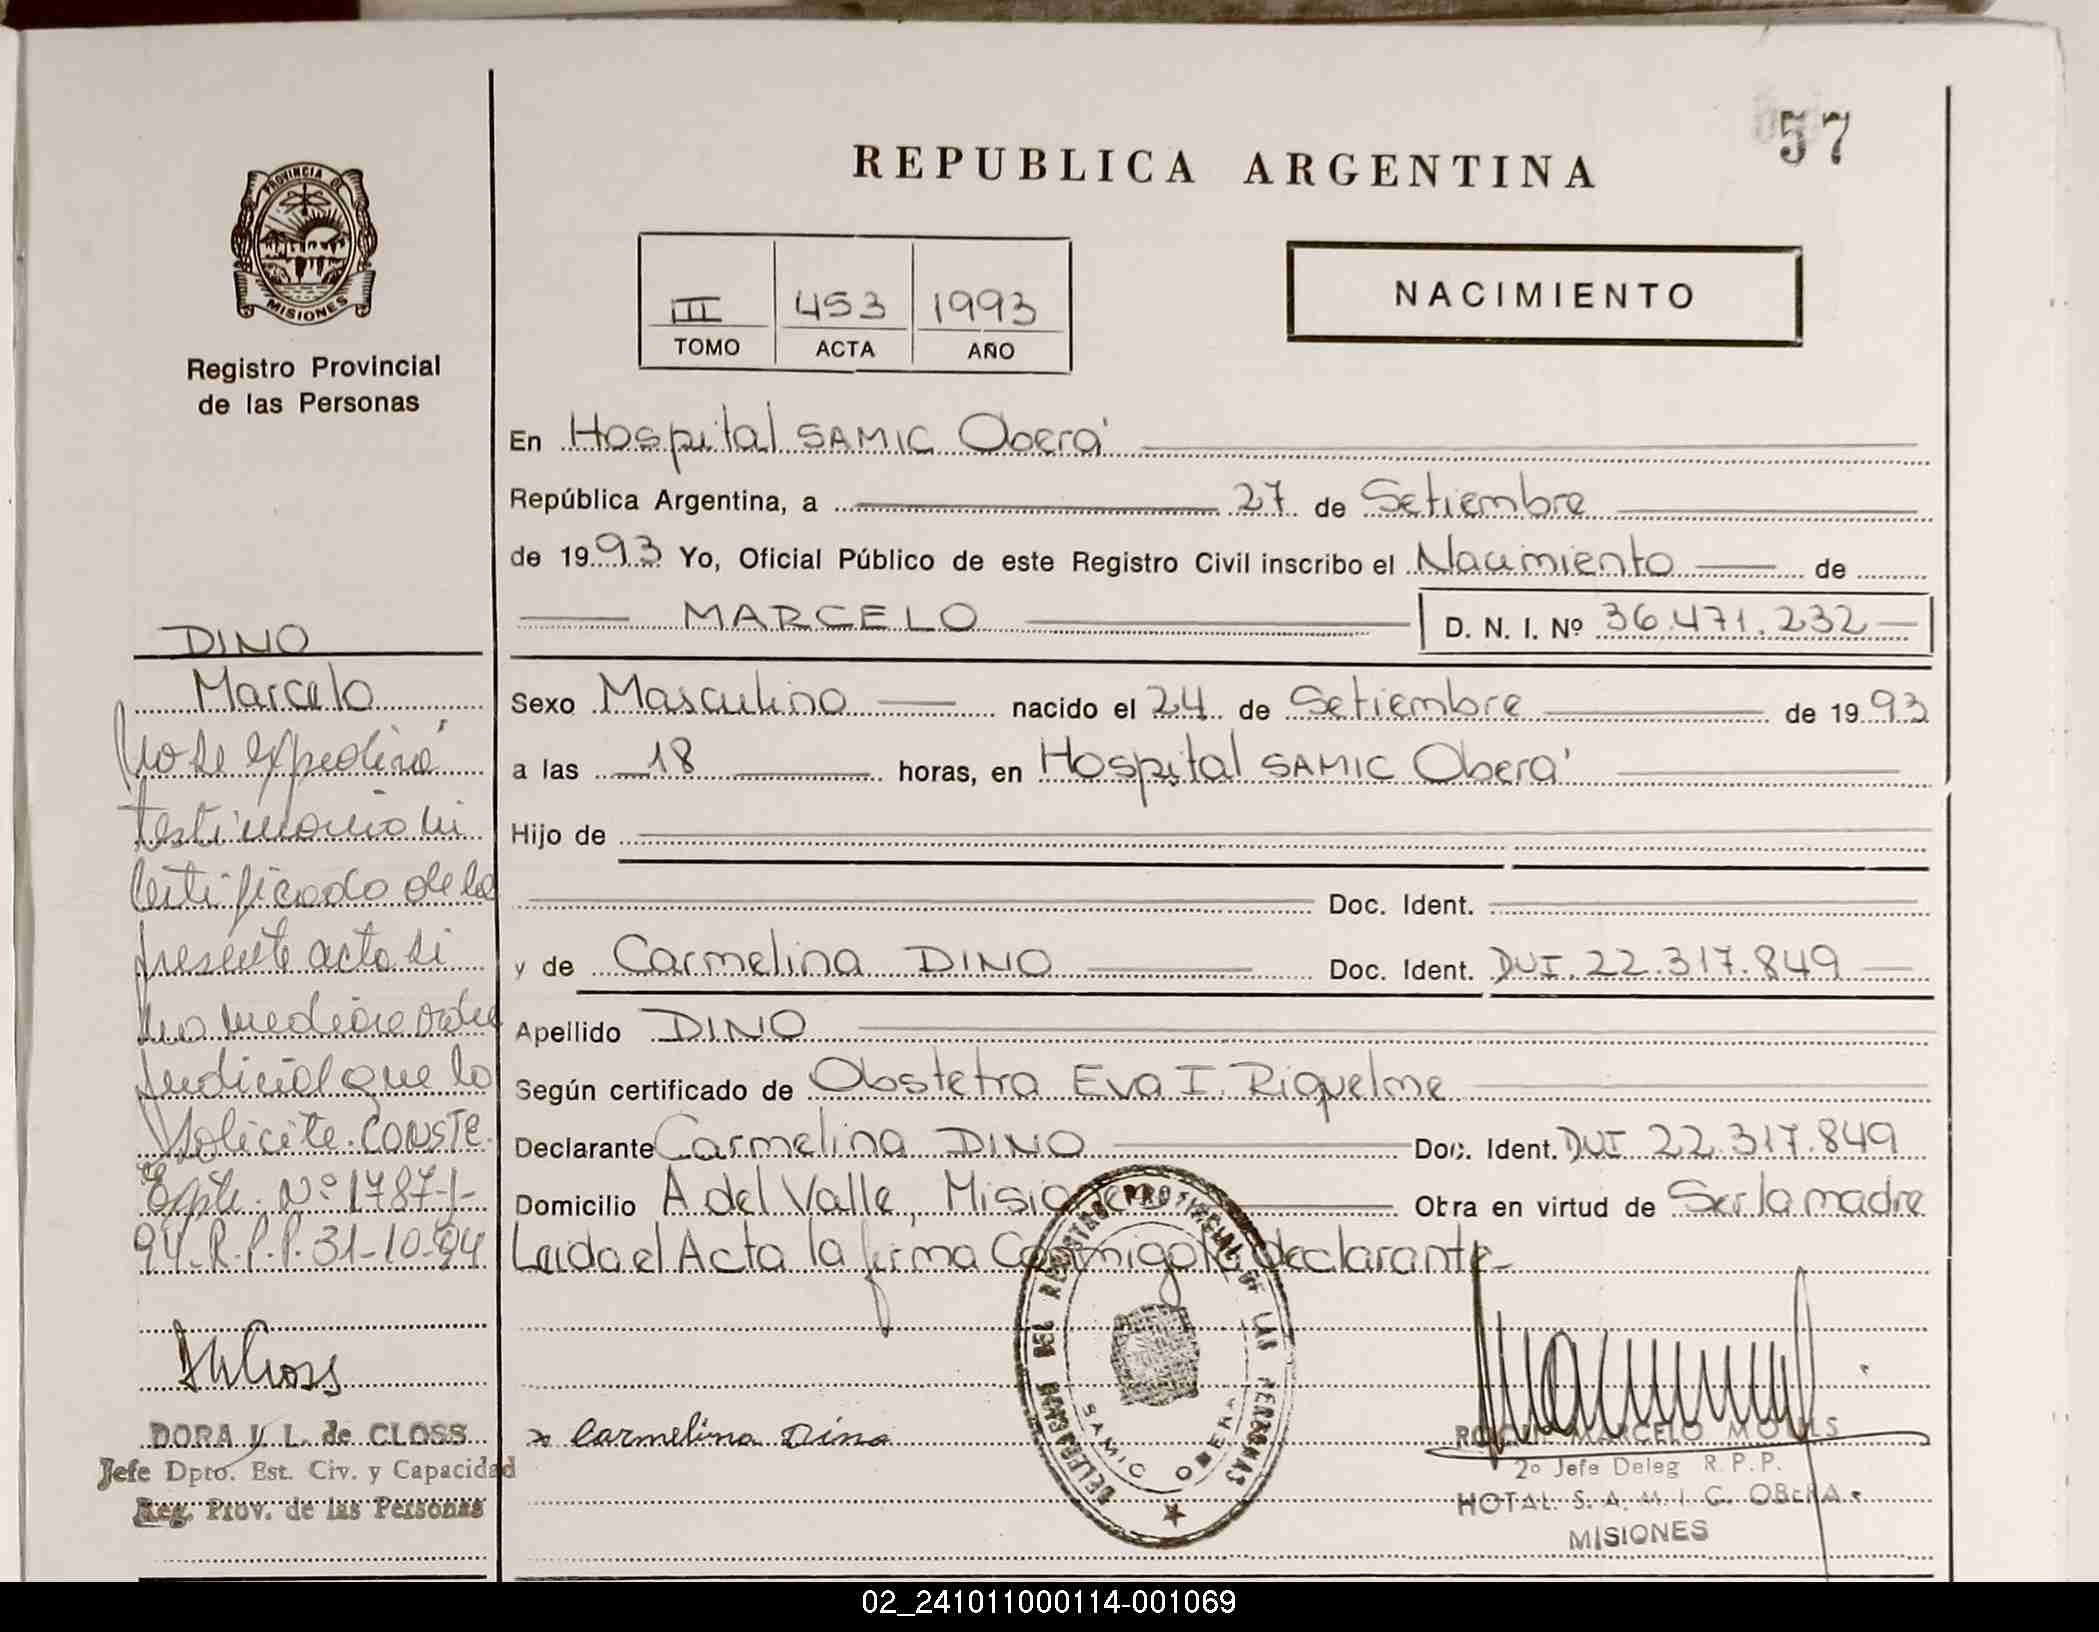 57
REPUBLICA ARGENTINA
PROVINCIA DE
MISIONES
Registro Provincial
de las Personas
III 453 1993
TOMO ACTA AÑO
NACIMIENTO
En Hospital SAMIC Oberá
República Argentina, a 27 de Setiembre
de 1993 Yo, Oficial Público de este Registro Civil inscribo el Nacimiento de
MARCELO D. N. I. Nº 36.471.232
Sexo Masculino nacido el 24 de Setiembre de 1993
a las 18 horas, en Hospital SAMIC Oberá
Hijo de
Doc. Ident.
y de Carmelina DINO Doc. Ident. DUI 22.317.849
Apellido DINO
Según certificado de Obstetra Eva I. Riquelme
Declarante Carmelina DINO Doc. Ident. DUI 22.317.849
Domicilio A del Valle, Misiones Obra en virtud de Ser la madre
Leida el Acta la firma Conmigo la declarante
Carmelina Dino
DELEGACION DEL REGISTRO PROVINCIAL DE LAS PERSONAS
SAMIC OBERA
MARCELO
2º Jefe Deleg R.P.P.
HOTAL. S. A. M. I. C. OBERA
MISIONES
DINO
Marcelo
No se expedirá
testimonio ni
certificado de la
presente acta si
no mediare orden
judicial que lo
solicite. CONSTE.
Expte. Nº 1787-J-
94-R.P.P. 31-10-94
DORA L. de CLOSS
Jefe Dpto. Est. Civ. y Capacidad
Reg. Prov. de las Personas
02_241011000114-001069